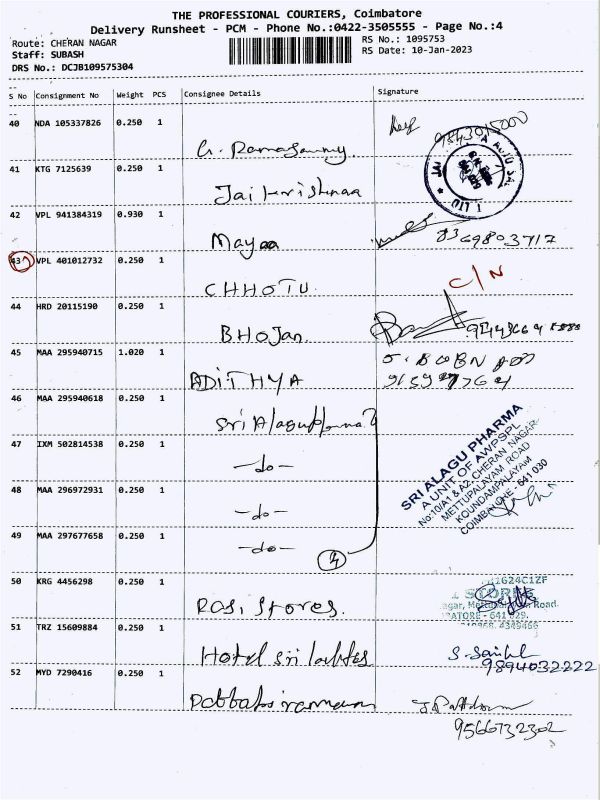 THE PROFESSIONAL COURIERS, Coimbatore
Delivery Runsheet - PCM - Phone No.:0422-3505555 - Page No.:4
Route: CHERAN NAGAR
RS No.: 1095753
Staff: SUBASH
RS Date: 10-Jan-2023
DRS No.: DCJB109575304
S No Consignment No Weight PCS Consignee Details Signature
40 NDA 105337826 0.250 1
G. Ramasamy.
41 KTG 7125639 0.250 1
Jai Krishnaa
42 VPL 941384319 0.930 1
Mayaa 8369803717
43 VPL 401012732 0.250 1
CHHOTU C/N
44 HRD 20115190 0.250 1
BHOJan.
45 MAA 295940715 1.020 1
ADITHYA
46 MAA 295940618 0.250 1
Sri Alagu Pharma
47 IXM 502814538 0.250 1
-do-
48 MAA 296972931 0.250 1
-do-
49 MAA 297677658 0.250 1
-do- 4
SRI ALAGU PHARMA
A UNIT OF AWPSPL
No:10/A1 & A2, CHERAN NAGAR-
METTUPALAYAM ROAD
KOUNDAMPALAYAM
COIMBATORE - 641 030
50 KRG 4456298 0.250 1
Rasi Stores.
STORES
51 TRZ 15609884 0.250 1
Hotel Sri
9894032222
52 MYD 7290416 0.250 1
Pattabiraman
9566732302